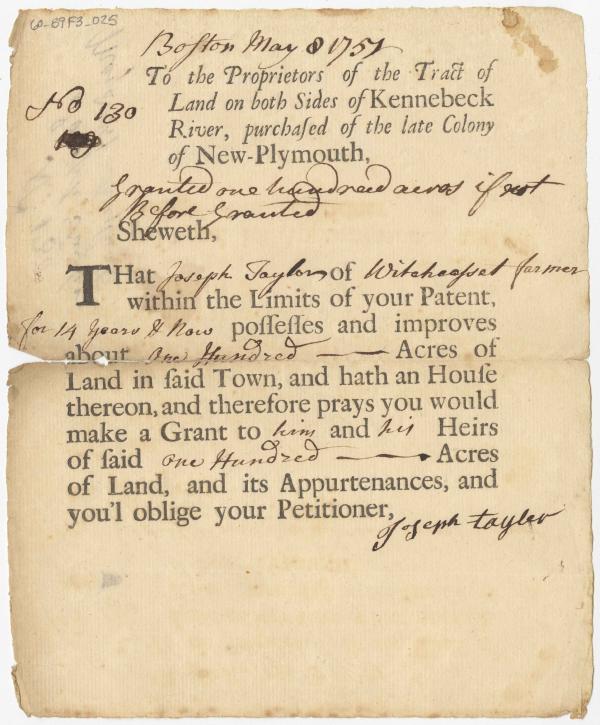 60-B9F3_025
Boston May 8 1751
To the Proprietors of the Tract of
No 130
Land on both Sides of Kennebeck
River, purchaſed of the late Colony
of New-Plymouth,
Granted one hundreed acres if not
Before Granted
Sheweth,
THat Joseph Taylor of Witchcasset farmer
within the Limits of your Patent,
for 14 Years & Now poſſeſſes and improves
about one Hundred Acres of
Land in ſaid Town, and hath an Houſe
thereon, and therefore prays you would
make a Grant to him and his Heirs
of ſaid one Hundred Acres
of Land, and its Appurtenances, and
you'l oblige your Petitioner,
Joseph tayler